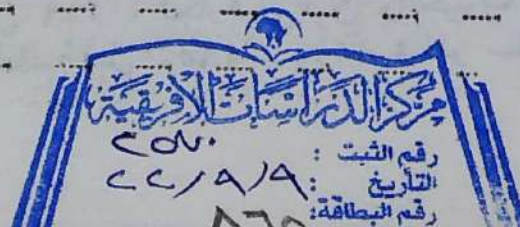 مركز الدراسات الأفريقية
رقم الثبت :
التأريخ : ٢٢/٩/٩
رقم البطاقة: